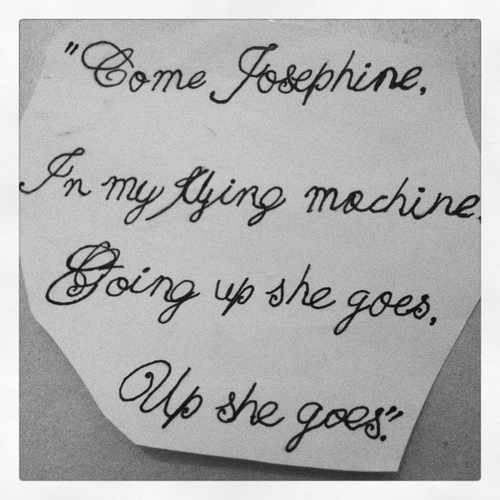 "Come Josephine,
In my flying machine.
Going up she goes,
Up she goes."